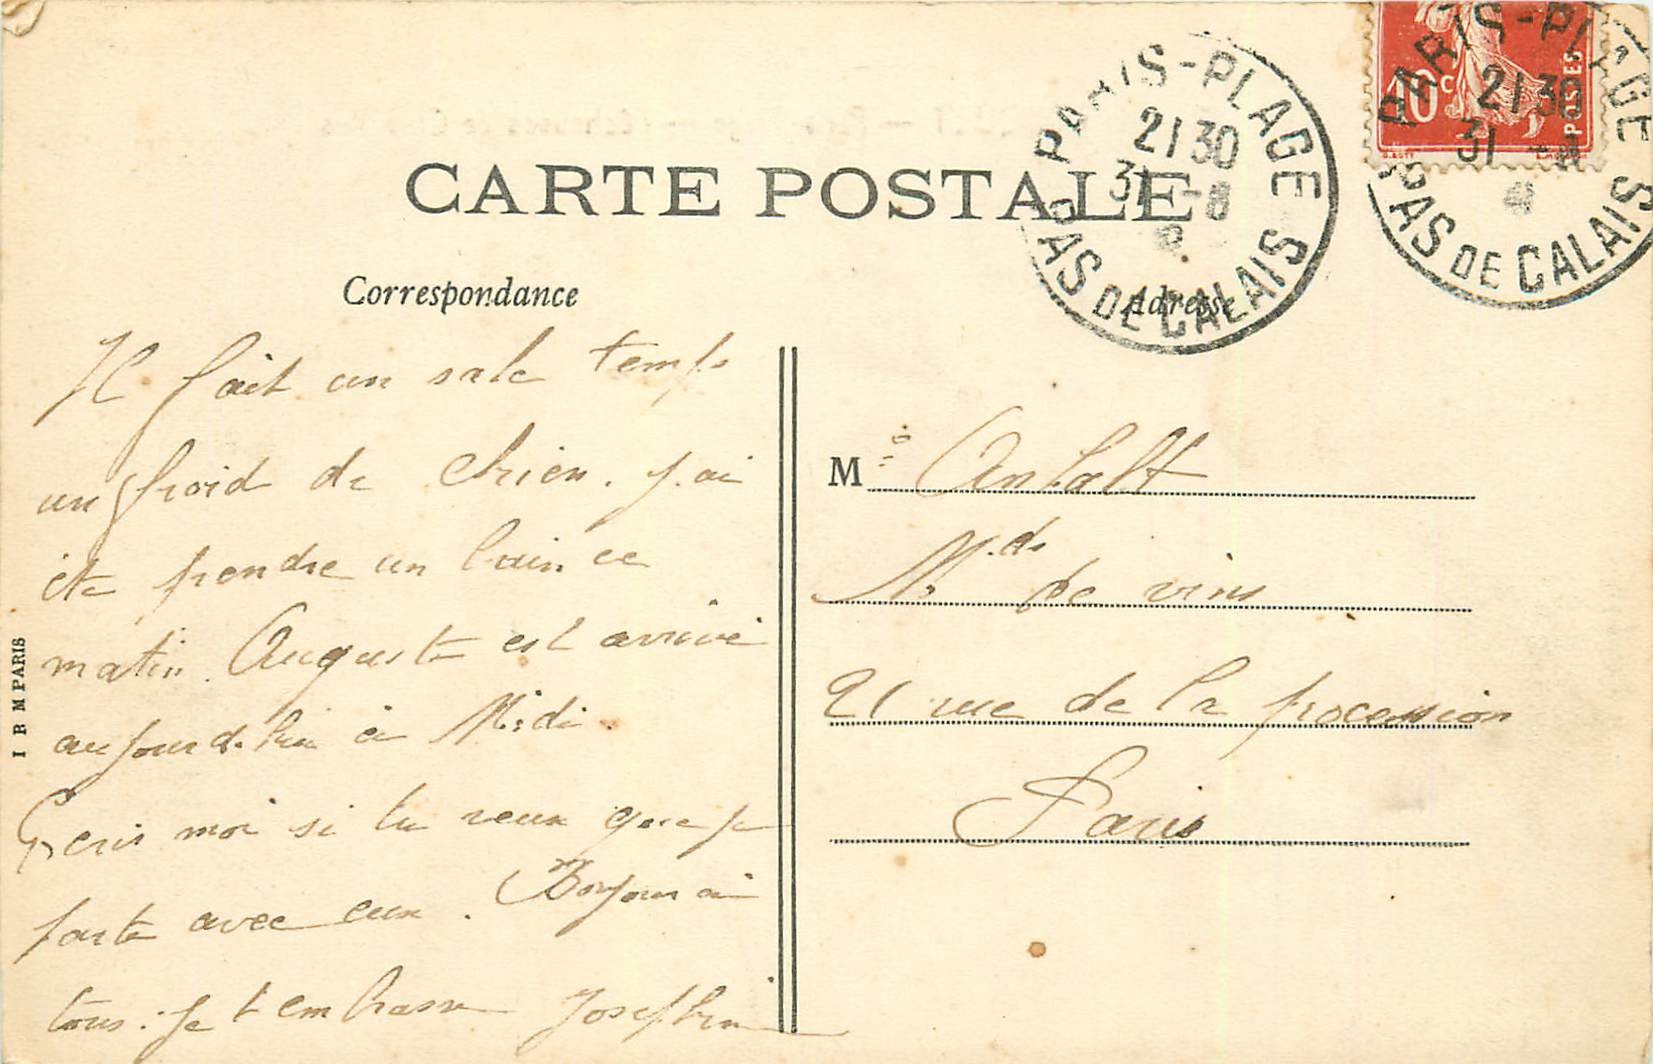 CARTE POSTALE
Correspondance
Il fait un sale temps
un froid de chien. J'ai
été prendre un bain ce
matin. Auguste est arrivé
aujourd'hui à Midi.
Ecris moi si tu veux que je
parte avec eux. Bonjour à
tous. je t'embrasse Josephine
I R M PARIS
Adresse
M
Md de vins
21 rue de la procession
Paris
PARIS-PLAGE
21 30
31 -8
PAS DE CALAIS
10c
POSTES
PARIS-PLAGE
21 30
31 -8
PAS DE CALAIS